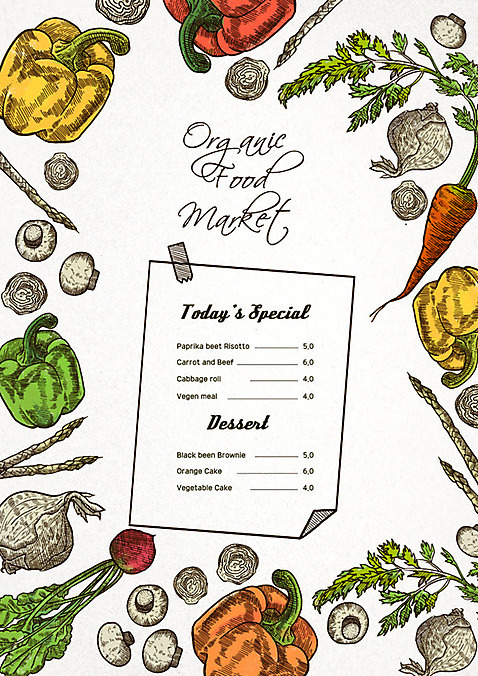 Organic
Food
Market
Today's Special
Paprika beet Risotto 5,0
Carrot and Beef 6,0
Cabbage roll 4,0
Vegen meal 4,0
Dessert
Black been Brownie 5,0
Orange Cake 6,0
Vegetable Cake 4,0